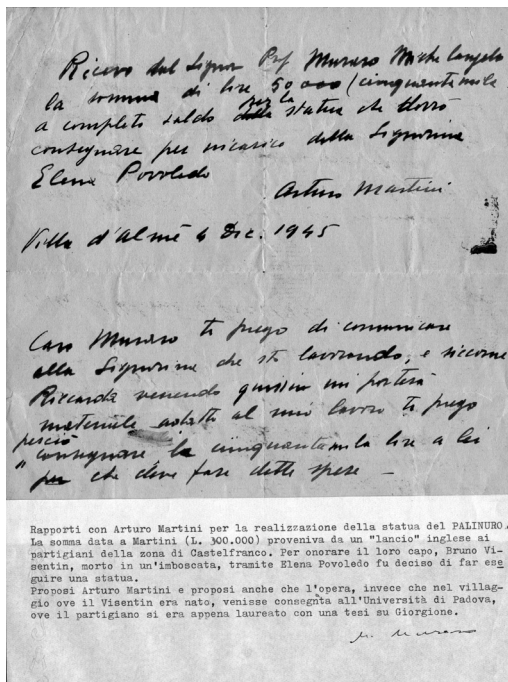 Ricevo dal Signor Prof Muraro Michelangelo
la somma di lire 50000 (cinquantamila
a completo saldo per la statua che dovrò
consegnare per incarico della Signorina
Elena Povoledo
Arturo Martini
Villa d'Almè 4 Dic. 1945
Caro Muraro ti prego di comunicare
alla Signorina che sto lavorando, e siccome
Riccarda venendo quassù mi porterà
materiale adatto al mio lavoro ti prego
perciò
consegnare le cinquantamila lire a lei
che deve fare dette spese —
Rapporti con Arturo Martini per la realizzazione della statua del PALINURO.
La somma data a Martini (L. 300.000) proveniva da un "lancio" inglese ai
partigiani della zona di Castelfranco. Per onorare il loro capo, Bruno Vi-
sentin, morto in un'imboscata, tramite Elena Povoledo fu deciso di far ese
guire una statua.
Proposi Arturo Martini e proposi anche che l'opera, invece che nel villag-
gio ove il Visentin era nato, venisse consegnta all'Università di Padova,
ove il partigiano si era appena laureato con una tesi su Giorgione.
M. Muraro